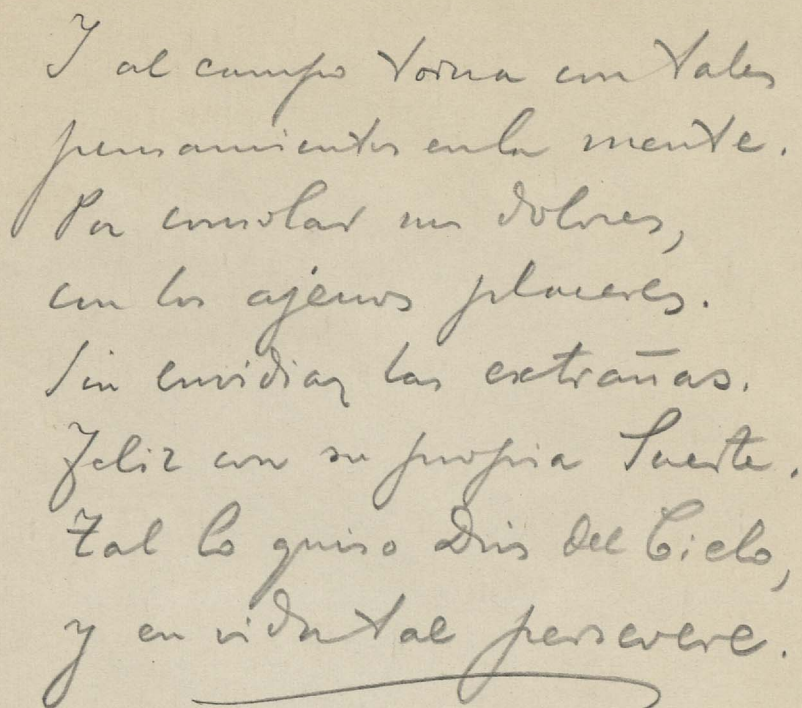 Y al campo torna con tales
pensamientos en la mente.
Por consolar sus dolores,
con los ajenos placeres.
Sin envidiar las extrañas.
Feliz con su propia Suerte.
Tal lo quiso Dios del Cielo,
y en vida tal persevere.